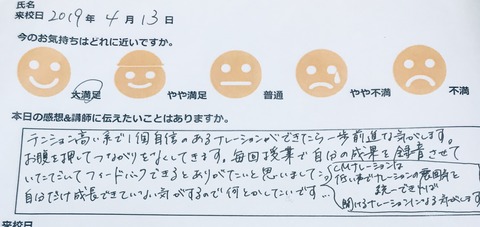 氏名
来校日 2019年 4月 13日
今のお気持ちはどれに近いですか。
大満足 やや満足 普通 やや不満 不満
本日の感想&講師に伝えたいことはありますか。
テンション高い系で1個自信のあるナレーションができたら一歩前進な気がします。
お腹を押してつながりをなくしてきます。毎回授業で自分の成果を録音させて
いただいてフィードバックできるとありがたいと思いまして…。
自分だけ成長できていない気がするので何とかしたいです…
CMナレーションは
低い声でナレーションの雰囲気を
統一できれば
聞けるナレーションになる気がします
来校日